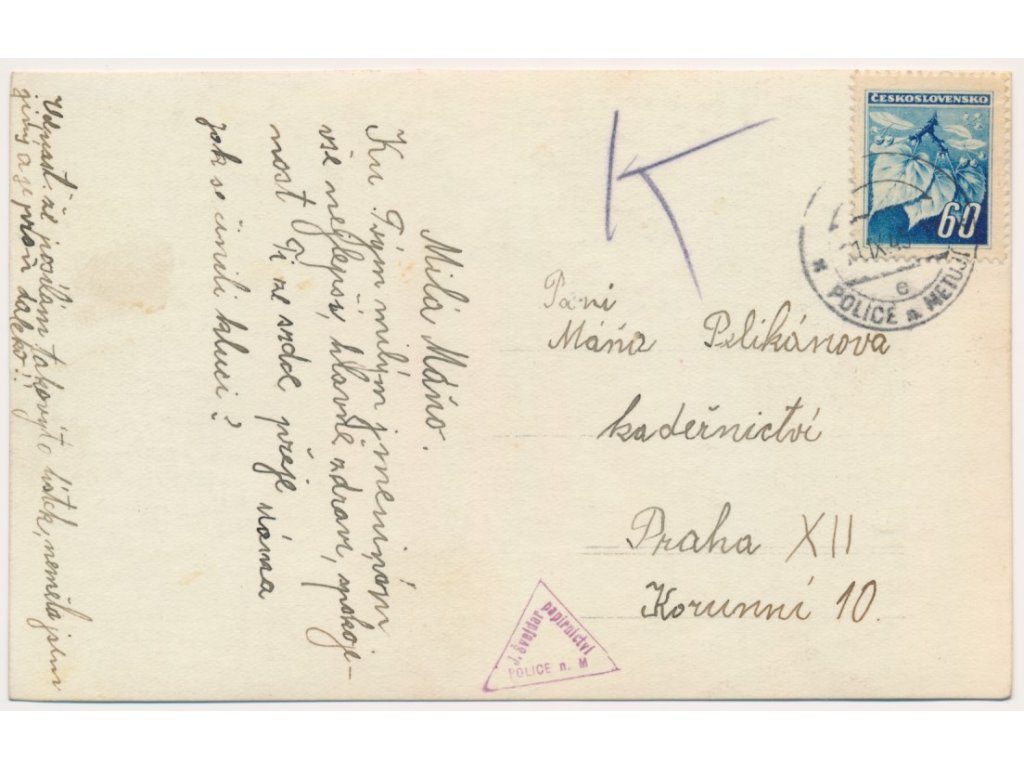 Milá Máňo.
Ku Tvým milým jmeninám
vše nejlepší, hlavně zdraví, spokoje-
nost Ti ze srdce přeje máma
jak se činili kluci?
že posílám takovýto lístek, neměla jsem
jiný a je proň daleko!
K
ČESKOSLOVENSKO
60
POLICE n. METUJÍ
e
Paní
Máňa Pelikánova
kadeřnictví
Praha XII
Korunní 10.
J. Švejdar
papírnictví
POLICE n. M